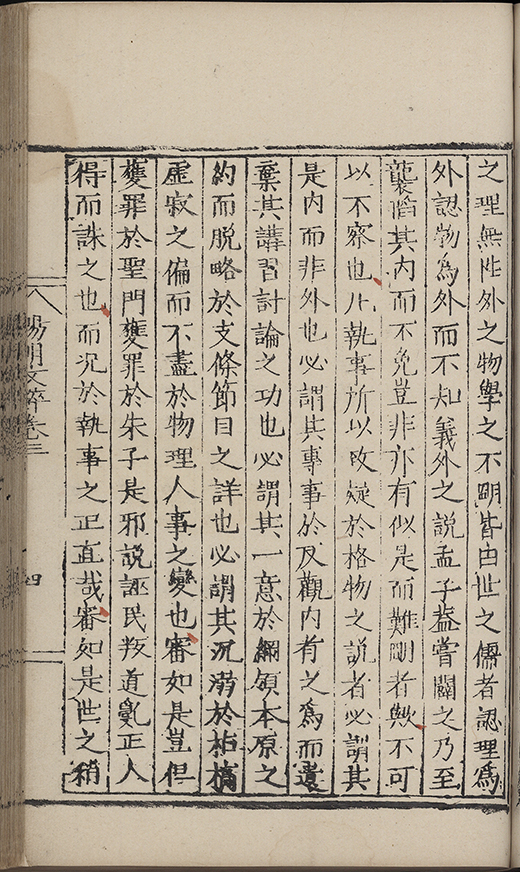 之理無性外之物學之不明皆由世之儒者認理爲
外認物爲外而不知義外之說孟子蓋嘗闢之乃至
襲陷其內而不覺豈非亦有似是而難明者歟不可
以不察也凡執事所以致疑於格物之說者必謂其
是內而非外也必謂其專事於反觀內省之爲而遺
棄其講習討論之功也必謂其一意於綱領本原之
約而脫略於支條節目之詳也必謂其沉溺於枯槁
虛寂之偏而不盡於物理人事之變也審如是豈但
獲罪於聖門獲罪於朱子是邪說誣民叛道亂正人
得而誅之也而况於執事之正直哉審如是世之稍
陽明文粹卷三
四